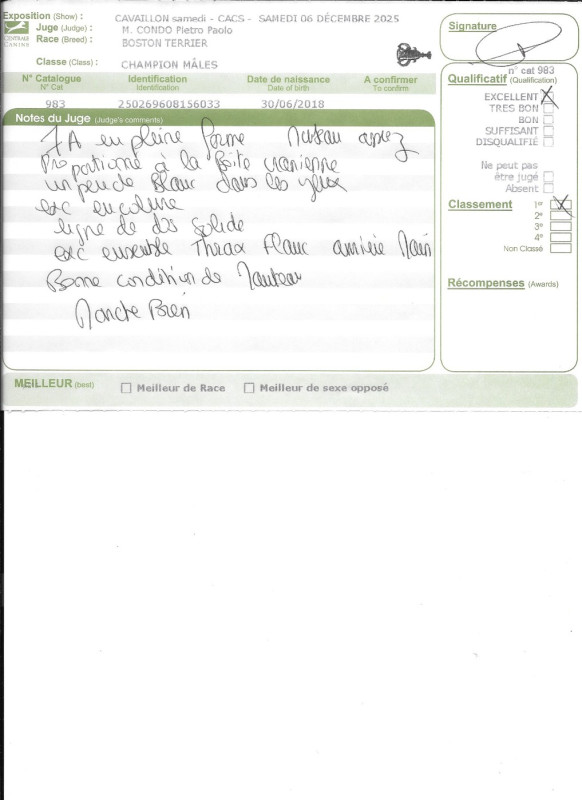 Exposition (Show) : CAVAILLON samedi - CACS - SAMEDI 06 DÉCEMBRE 2025
Juge (Judge) : M. CONDO Pietro Paolo
Race (Breed) : BOSTON TERRIER
Classe (Class) : CHAMPION MÂLES
CENTRALE CANINE
N° Catalogue Identification Date de naissance A confirmer
N° Cat Identification Date of birth To confirm
983 250269608156033 30/06/2018
Notes du Juge (Judge's comments)
7A en pleine forme Museau assez
Proportionné à la Boite cranienne
un peu de Blanc dans les yeux
exc encolure
ligne de dos solide
exc ensemble Thorax Flanc
Bonne condition de
Marche Bien
Signature
n° cat 983
Qualificatif (Qualification)
EXCELLENT
TRES BON
BON
SUFFISANT
DISQUALIFIÉ
Ne peut pas
être jugé
Absent
Classement 1er
2e
3e
4e
Non Classé
Récompenses (Awards)
MEILLEUR (best) Meilleur de Race Meilleur de sexe opposé